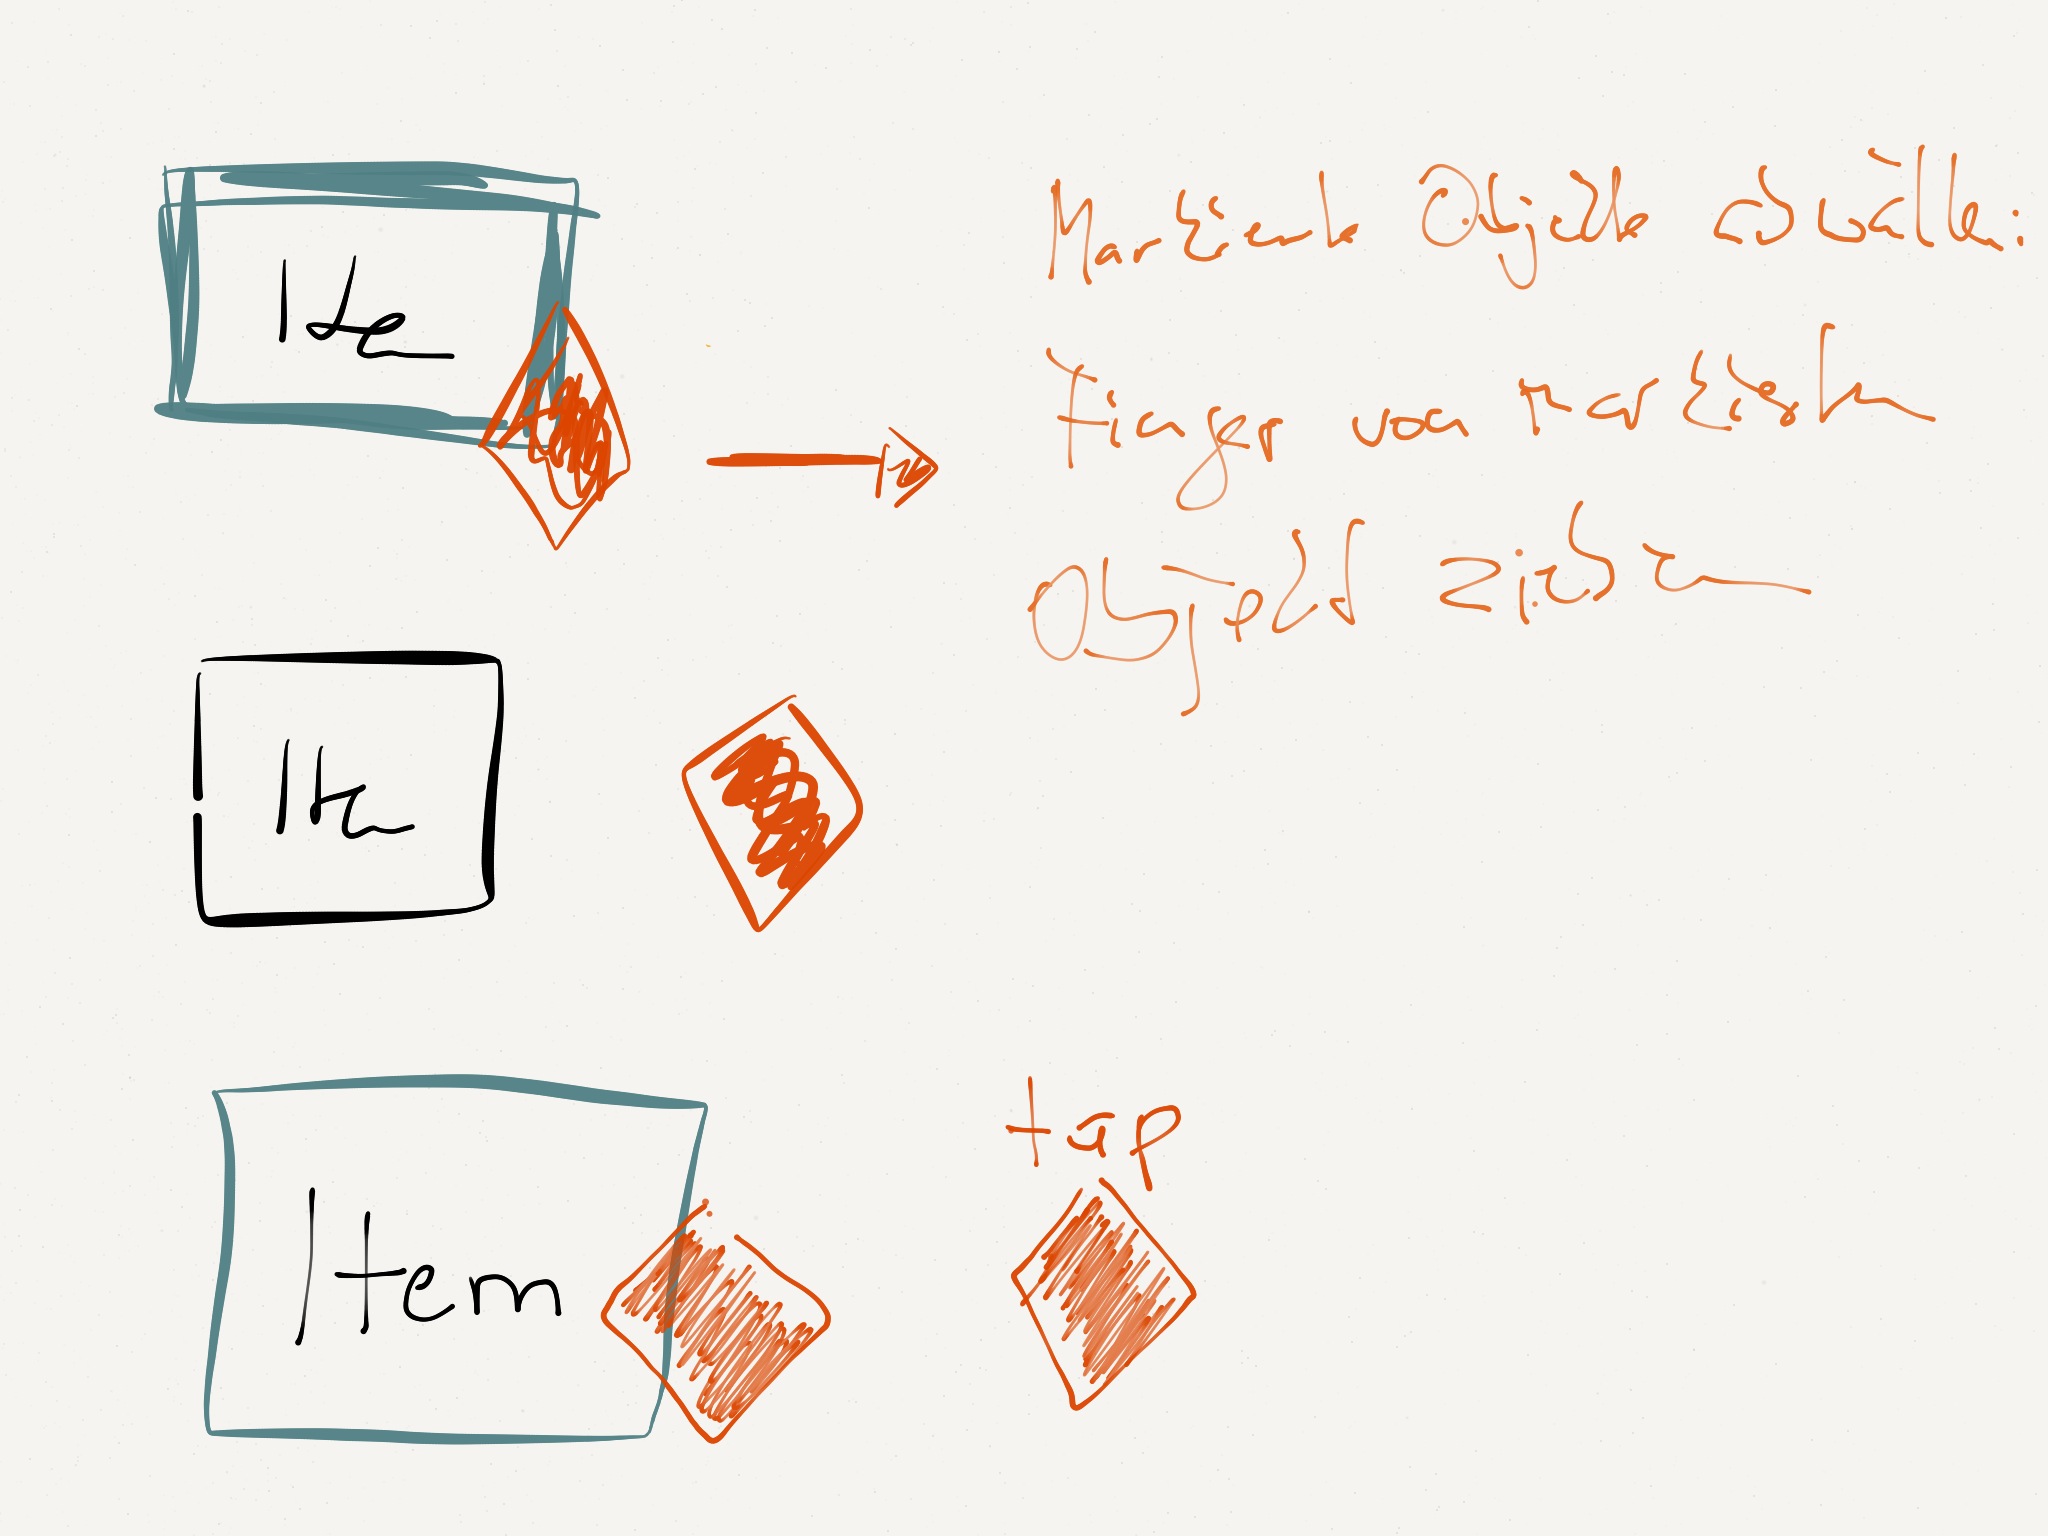 Item
Markierte Objekte abwählen:
Finger von markiertem
Objekt ziehen
Item
tap
Item